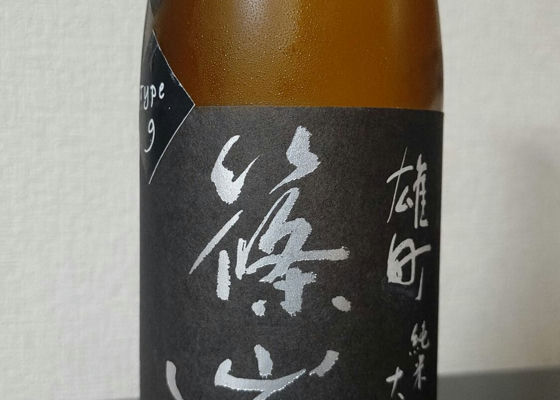 Type
9
篠
雄町
純米